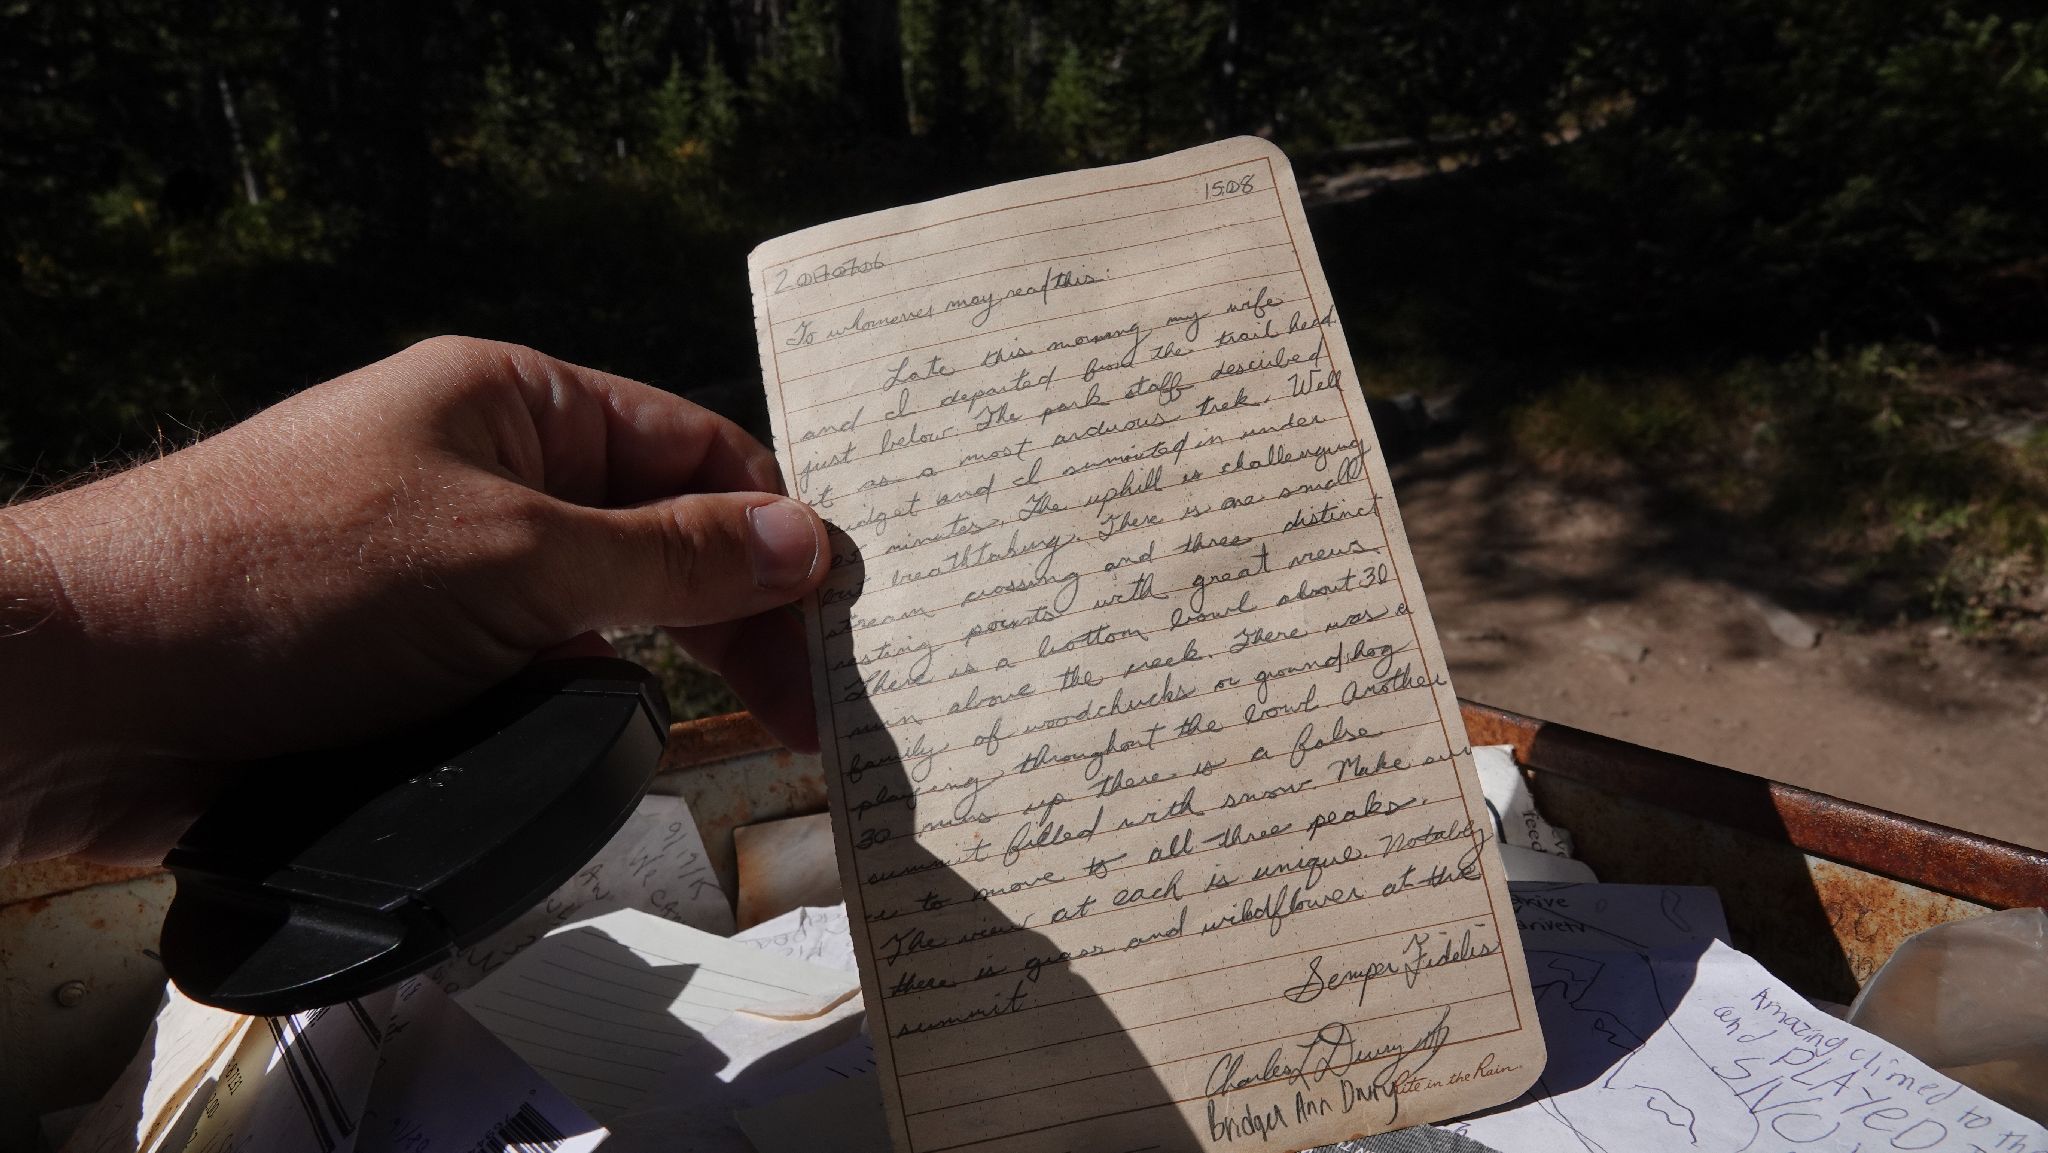 1508
20170706
To whomever may read this:
Late this morning my wife
and I departed from the trail head
just below. The park staff described
it as a most arduous trek. Well
Bridget and I sumited in under
minutes. The uphill is challenging
but breathtaking. There is one small
stream crossing and three distinct
resting points with great views
There is a bottom bowl about 30
min above the creek. There was a
family of woodchucks or groundhog
playing throughout the bowl. Another
30 mins up there is a false
summit filled with snow. Make sure
to move to all three peaks.
The view at each is unique. Notably
there is grass and wildflower at the
summit
Semper Fidelis
Charles L Drury
Bridget Ann Drury
Rite in the Rain
9/17/
We
feed
Drive
Amazing climed to th
and PLAYED
SNO